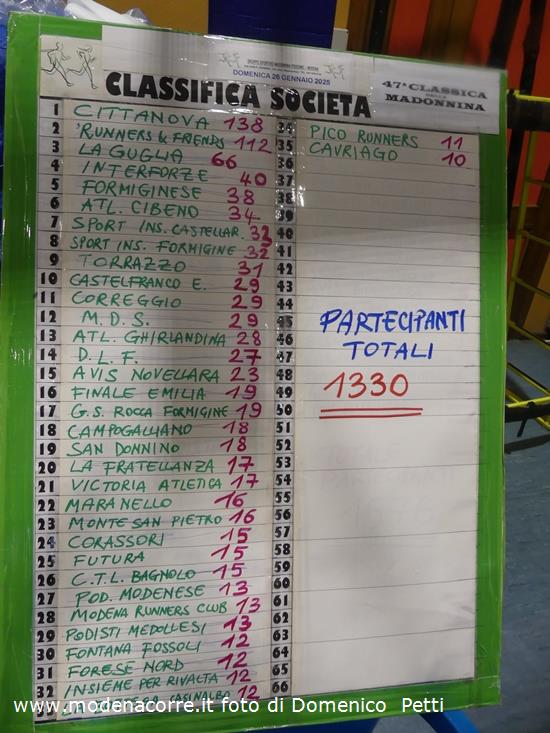 GRUPPO SPORTIVO MADONNINA PODISMO - MODENA
DOMENICA 26 GENNAIO 2025
47ª CLASSICA
DELLA
MADONNINA
CLASSIFICA SOCIETA
1 CITTANOVA 138
2 RUNNERS & FRIENDS 112
3 LA GUGLIA 66
4 INTERFORZE 40
5 FORMIGINESE 38
6 ATL. CIBENO 34
7 SPORT INS. CASTELLAR. 32
8 SPORT INS. FORMIGINE 32
9 TORRAZZO 31
10 CASTELFRANCO E. 29
11 CORREGGIO 29
12 M.D.S. 29
13 ATL. GHIRLANDINA 28
14 D.L.F. 27
15 AVIS NOVELLARA 23
16 FINALE EMILIA 19
17 G.S. ROCCA FORMIGINE 19
18 CAMPOGALLIANO 18
19 SAN DONNINO 18
20 LA FRATELLANZA 17
21 VICTORIA ATLETICA 17
22 MARANELLO 16
23 MONTE SAN PIETRO 16
24 CORASSORI 15
25 FUTURA 15
26 C.T.L. BAGNOLO 15
27 POD. MODENESE 13
28 MODENA RUNNERS CLUB 13
29 PODISTI MEDOLLESI 13
30 FONTANA FOSSOLI 12
31 FORESE NORD 12
32 INSIEME PER RIVALTA 12
33 CASINALBO 12
34 PICO RUNNERS 11
35 CAVRIAGO 10
36
37
38
39
40
41
42
43
44
45
46
47
48
49
50
51
52
53
54
55
56
57
58
59
60
61
62
63
64
65
66
PARTECIPANTI
TOTALI
1330
www.modenacorre.it foto di Domenico Petti